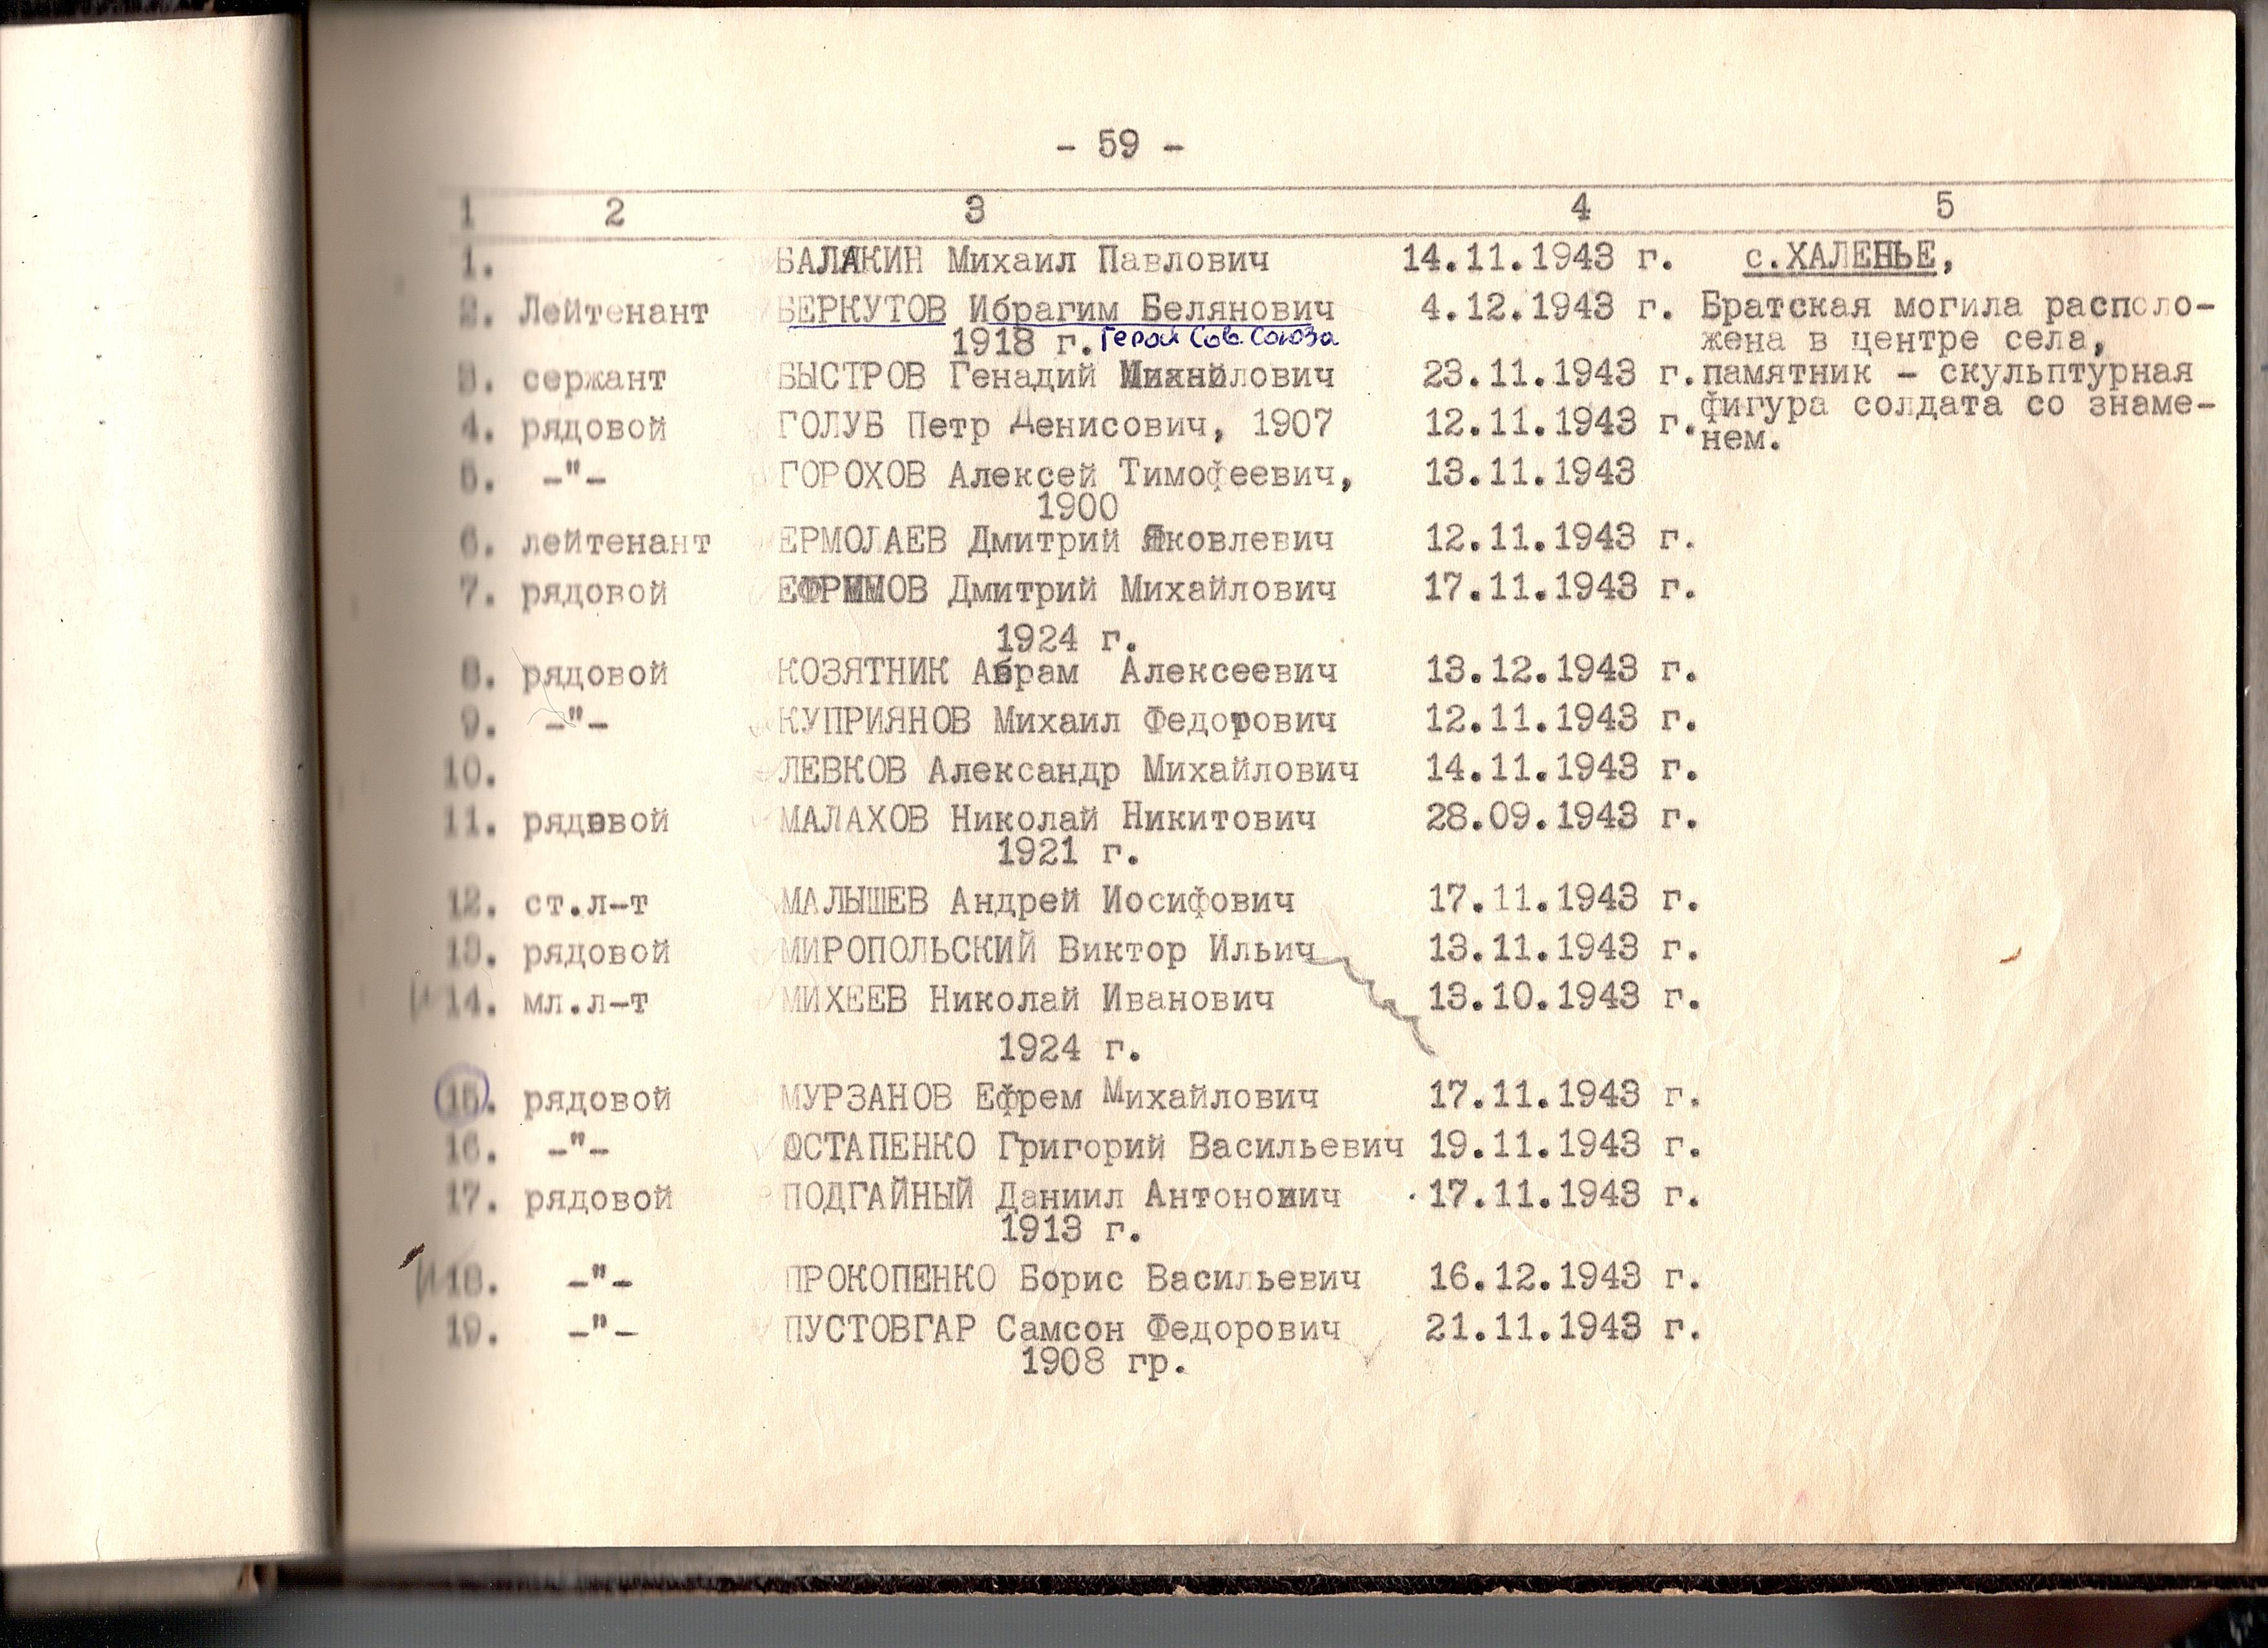 - 59 -
1 2 3 4 5
1. БАЛАКИН Михаил Павлович 14.11.1943 г. с.ХАЛЕНЬЕ,
2. Лейтенант БЕРКУТОВ Ибрагим Белянович 4.12.1943 г. Братская могила располо-
1918 г. Герой Сов. Союза жена в центре села,
3. сержант БЫСТРОВ Генадий Михайлович 23.11.1943 г. памятник - скульптурная
фигура солдата со знаме-
4. рядовой ГОЛУБ Петр Денисович, 1907 12.11.1943 г. нем.
5. -"- ГОРОХОВ Алексей Тимофеевич, 13.11.1943
1900
6. лейтенант ЕРМОЛАЕВ Дмитрий Яковлевич 12.11.1943 г.
7. рядовой ЕФРИМОВ Дмитрий Михайлович 17.11.1943 г.
1924 г.
8. рядовой КОЗЯТНИК Абрам Алексеевич 13.12.1943 г.
9. -"- КУПРИЯНОВ Михаил Федорович 12.11.1943 г.
10. ЛЕВКОВ Александр Михайлович 14.11.1943 г.
11. рядовой МАЛАХОВ Николай Никитович 28.09.1943 г.
1921 г.
12. ст.л-т МАЛЫШЕВ Андрей Иосифович 17.11.1943 г.
13. рядовой МИРОПОЛЬСКИЙ Виктор Ильич 13.11.1943 г.
14. мл.л-т МИХЕЕВ Николай Иванович 13.10.1943 г.
1924 г.
15. рядовой МУРЗАНОВ Ефрем Михайлович 17.11.1943 г.
16. -"- ОСТАПЕНКО Григорий Васильевич 19.11.1943 г.
17. рядовой ПОДГАЙНЫЙ Даниил Антонович 17.11.1943 г.
1913 г.
18. -"- ПРОКОПЕНКО Борис Васильевич 16.12.1943 г.
19. -"- ПУСТОВГАР Самсон Федорович 21.11.1943 г.
1908 гр.